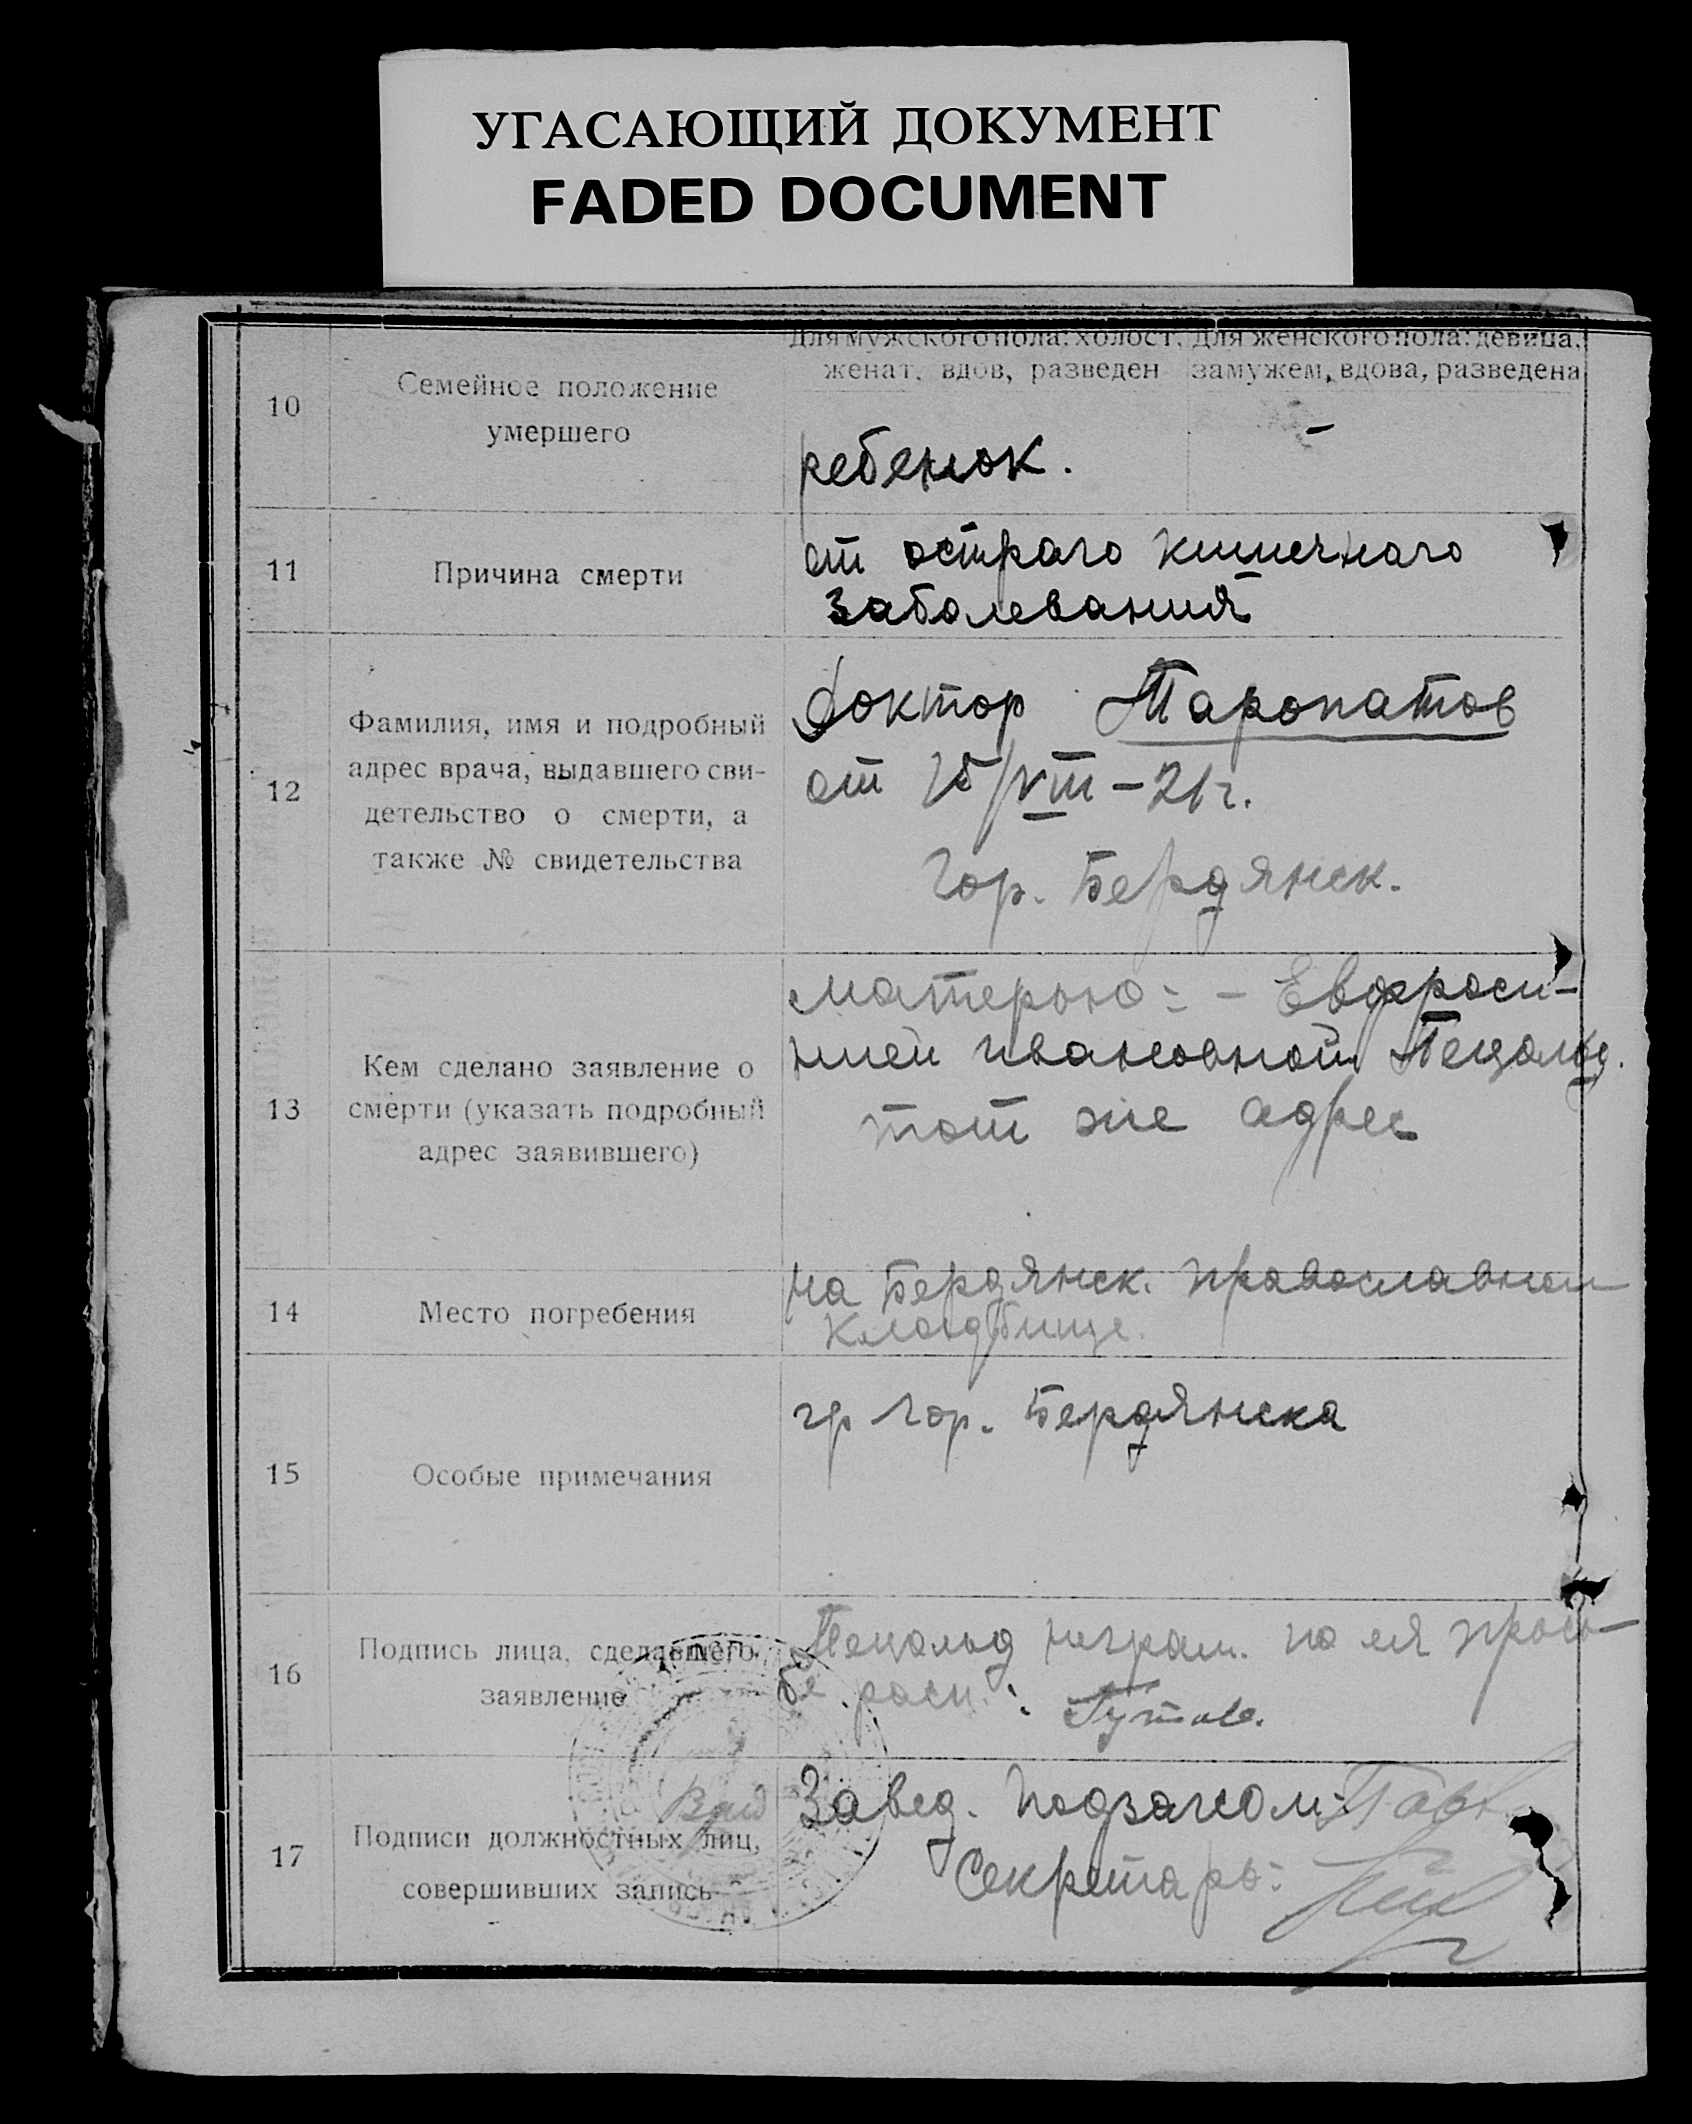 УГАСАЮЩИЙ ДОКУМЕНТ
FADED DOCUMENT
10
Семейное положение
умершего
Для мужского пола: холост,
женат, вдов, разведен
Для женского пола: девица,
замужем, вдова, разведена
ребенок.
–
11
Причина смерти
от остраго кишечнаго
заболевания
12
Фамилия, имя и подробный
адрес врача, выдавшего сви-
детельство о смерти, а
также № свидетельства
Доктор Таропатов
от /VIII – 21 г.
Гор. Бердянск.
13
Кем сделано заявление о
смерти (указать подробный
адрес заявившего)
матерью: – Евфроси-
нией Ивановной
тот же адрес
14
Место погребения
на Бердянск. православном
кладбище.
15
Особые примечания
гр гор. Бердянска
16
Подпись лица, сделавшего
заявление
неграм. по ея прось-
бе расп.:
17
Подписи должностных лиц,
совершивших запись
Завед. Подзагсом:
Секретарь: